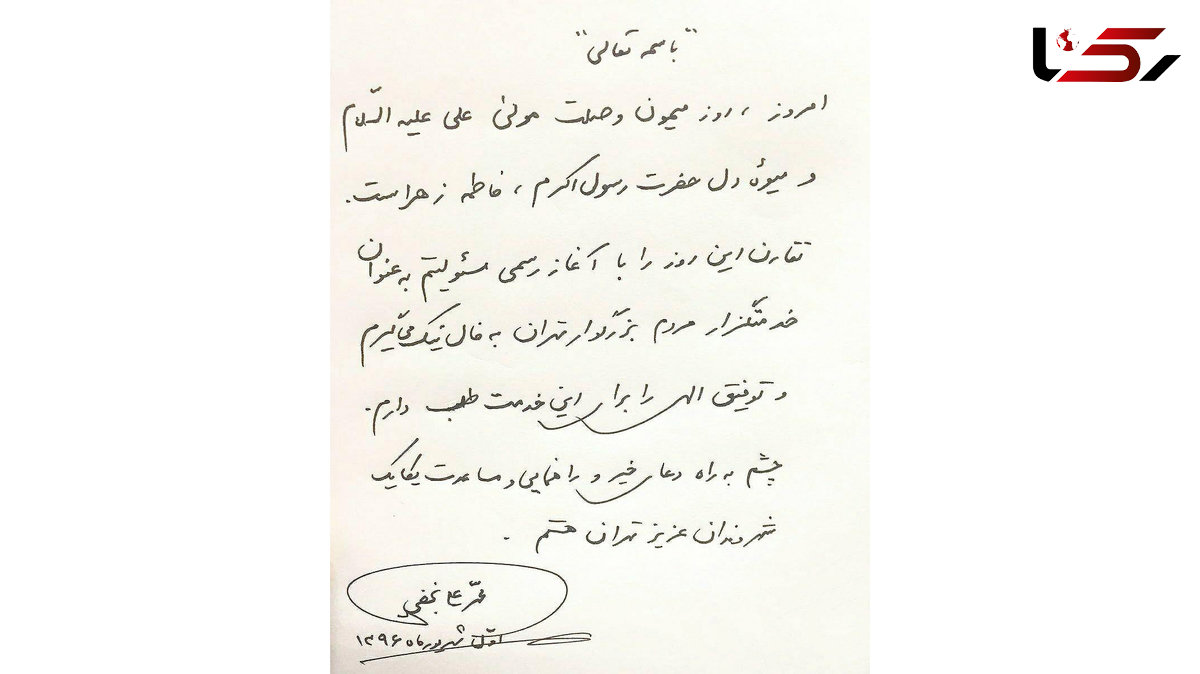 رکنا
"باسمه تعالی"
امروز ، روز میمون وصلت مولیٰ علی علیه السّلام
و میوهٔ دل حضرت رسول اکرم ، فاطمه زهراست.
تقارن این روز را با آغاز رسمی مسئولیتم به عنوان
خدمتگزار مردم بزرگوار تهران به فال نیک می‌گیرم
و توفیق الهی را برای این خدمت طلب دارم.
چشم به راه دعای خیر و راهنمایی و مساعدت یکایک
شهروندان عزیز تهران هستم .
محمّد علی نجفی
اوّل شهریور ماه ۱۳۹۶